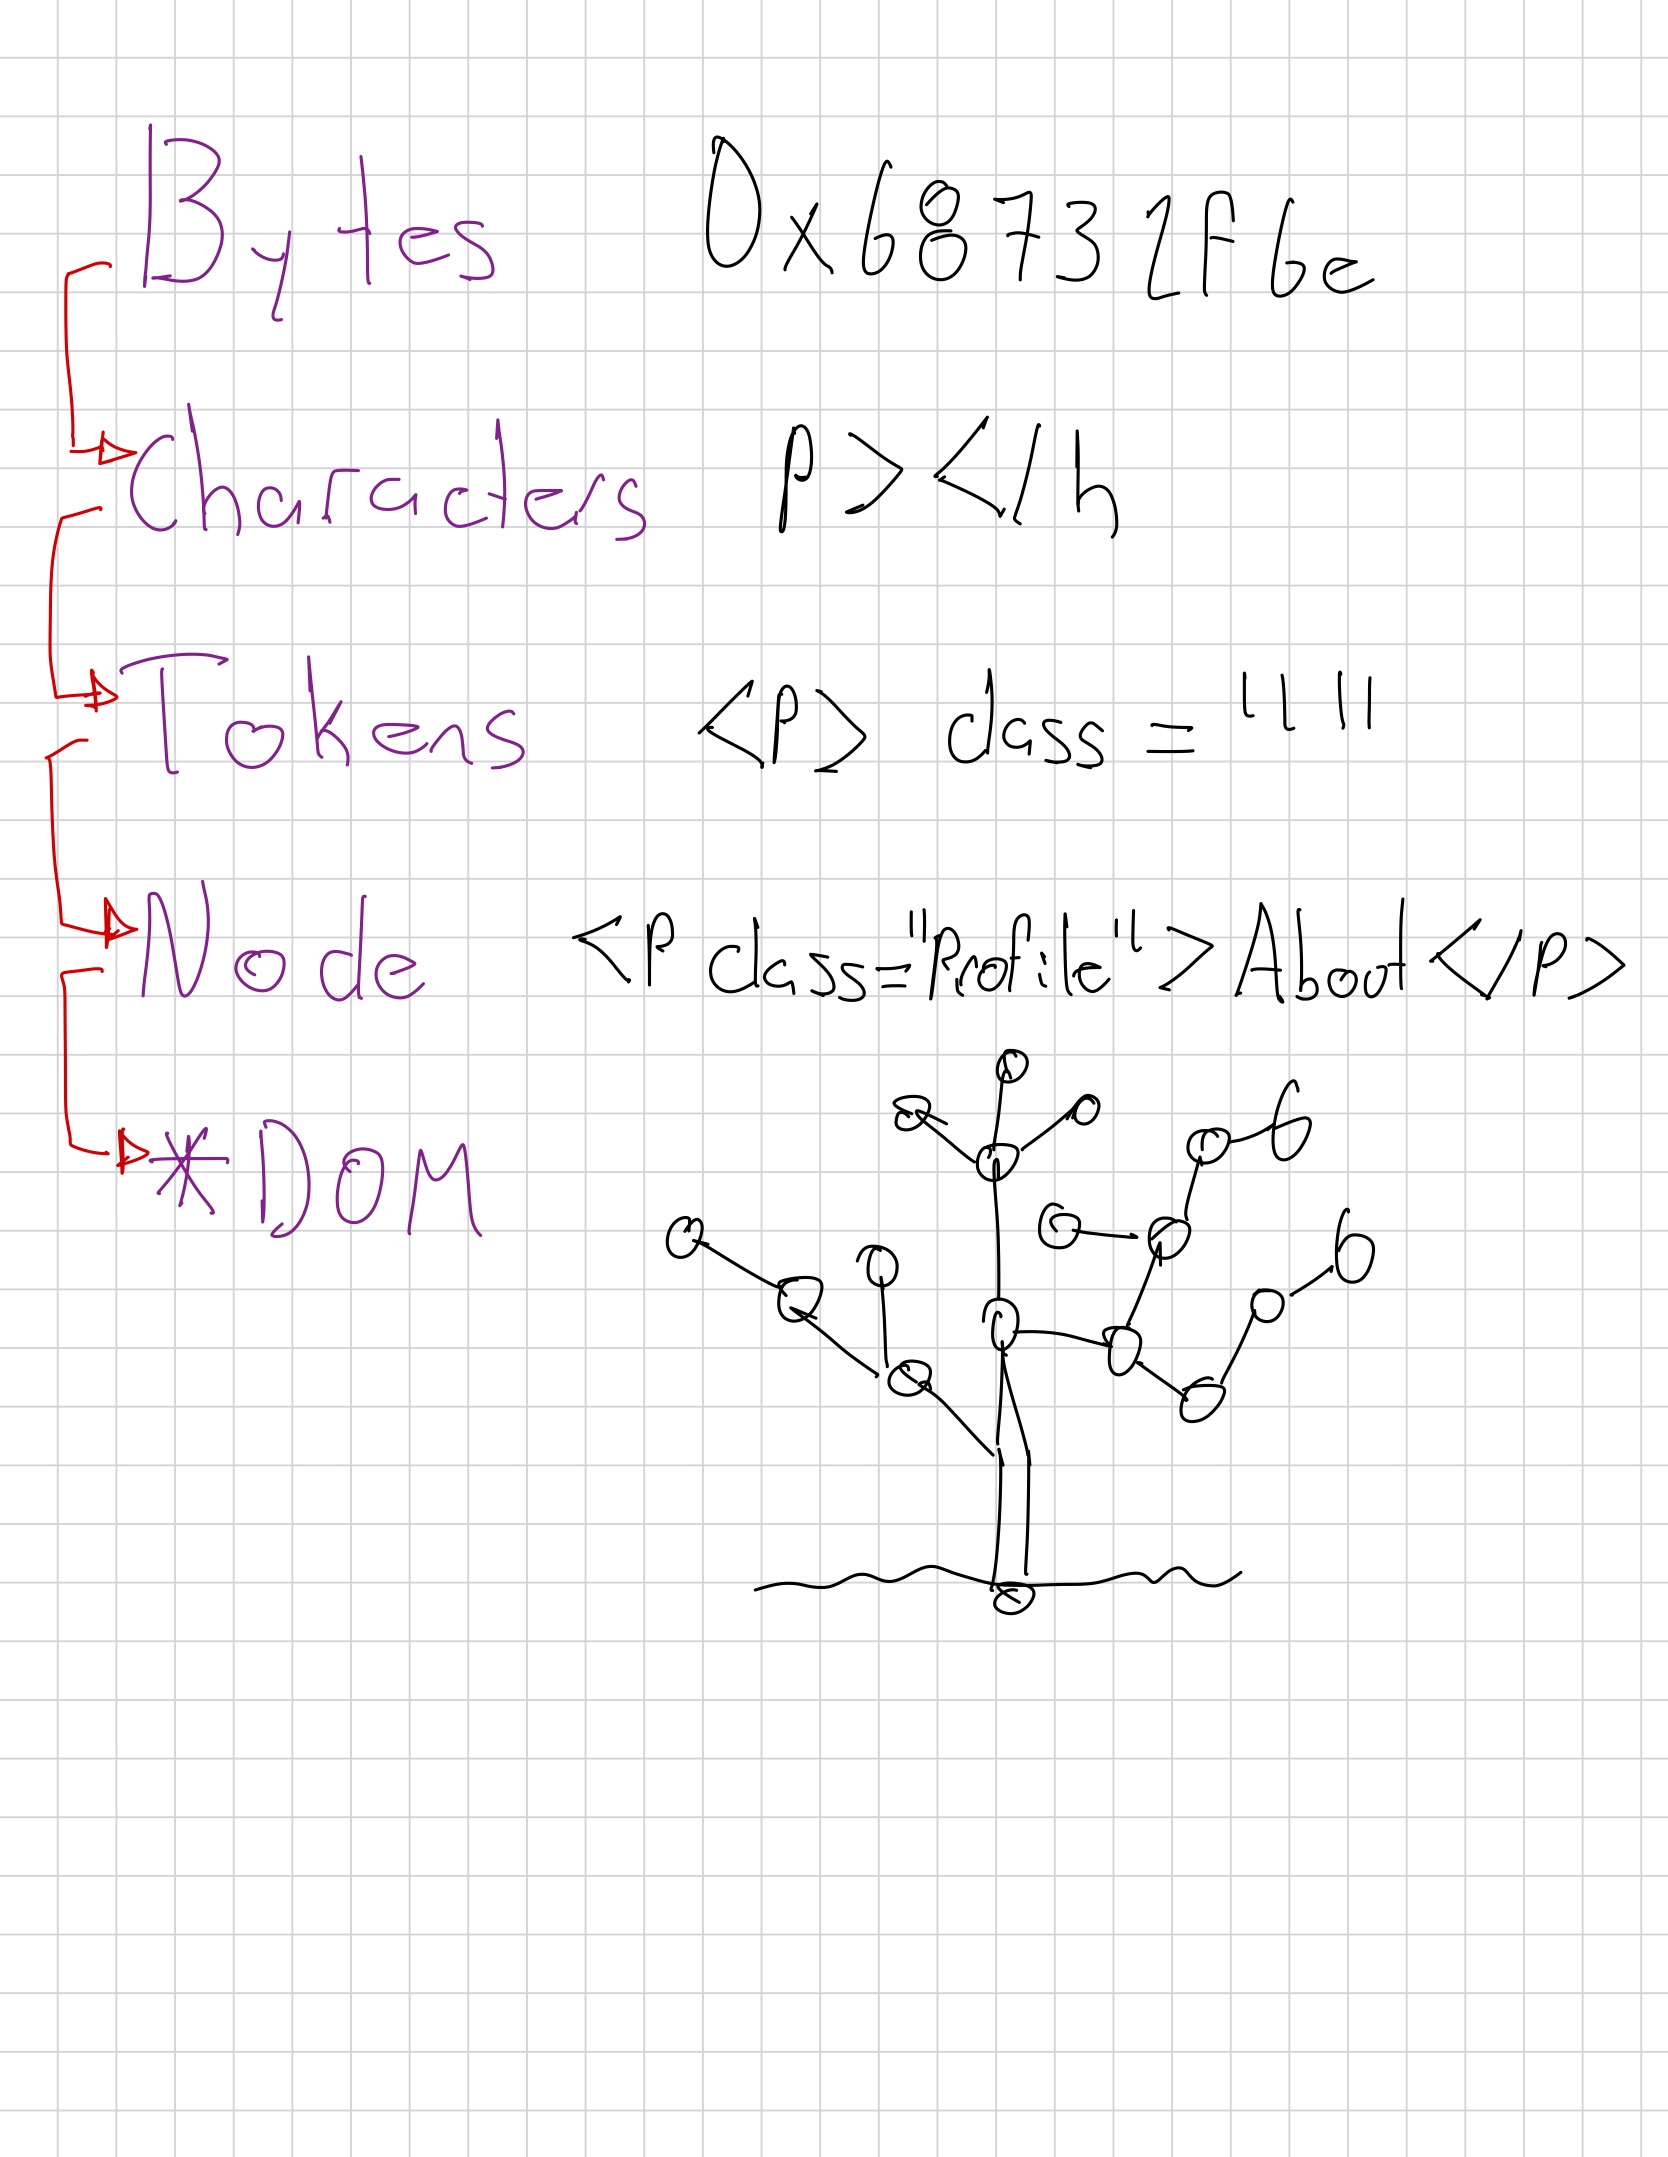 Bytes 0x68732f6e
Characters p></h
Tokens <p> class = " "
Node <p class="Profile">About</p>
*DOM